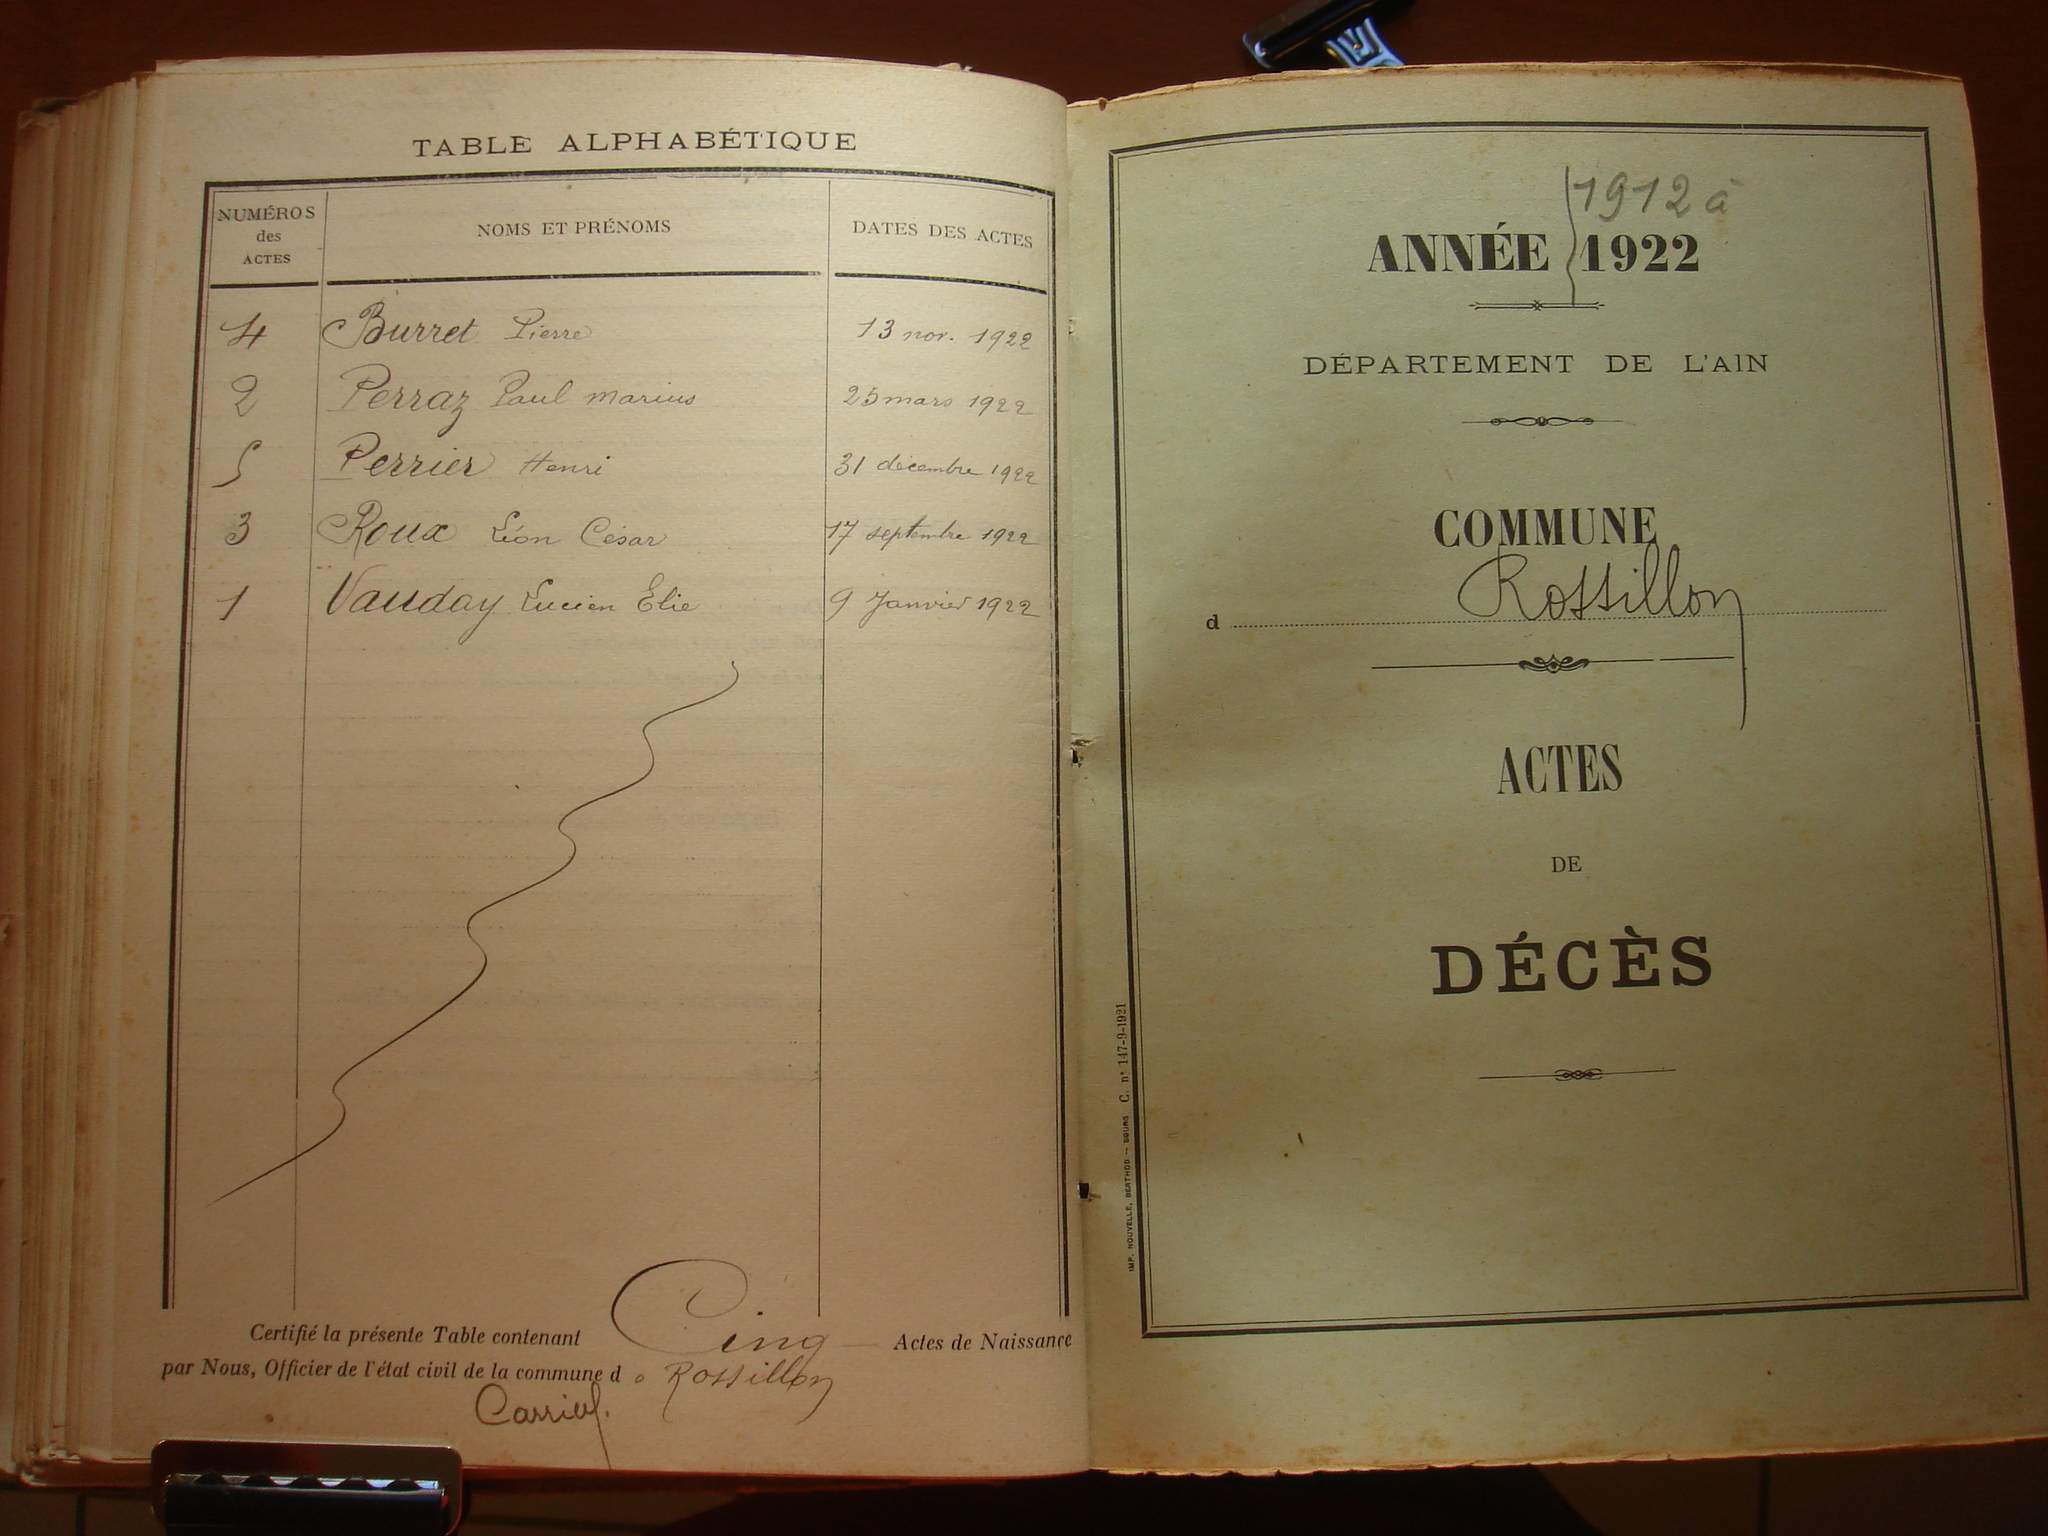 TABLE ALPHABÉTIQUE
NUMÉROS des ACTES
NOMS ET PRÉNOMS
DATES DES ACTES
4 Burret Pierre 13 nov. 1922
2 Perraz Paul Marius 25 mars 1922
5 Perrier Henri 31 décembre 1922
3 Roux Léon César 17 septembre 1922
1 Vauday Lucien Elie 9 Janvier 1922
Certifié la présente Table contenant Cinq Actes de Naissance
par Nous, Officier de l'état civil de la commune de Rossillon
1912 à
ANNÉE 1922
DÉPARTEMENT DE L'AIN
COMMUNE
d Rossillon
ACTES
DE
DÉCÈS
IMP. NOUVELLE, BERTHOD — BOURG C. n° 147-9-1921